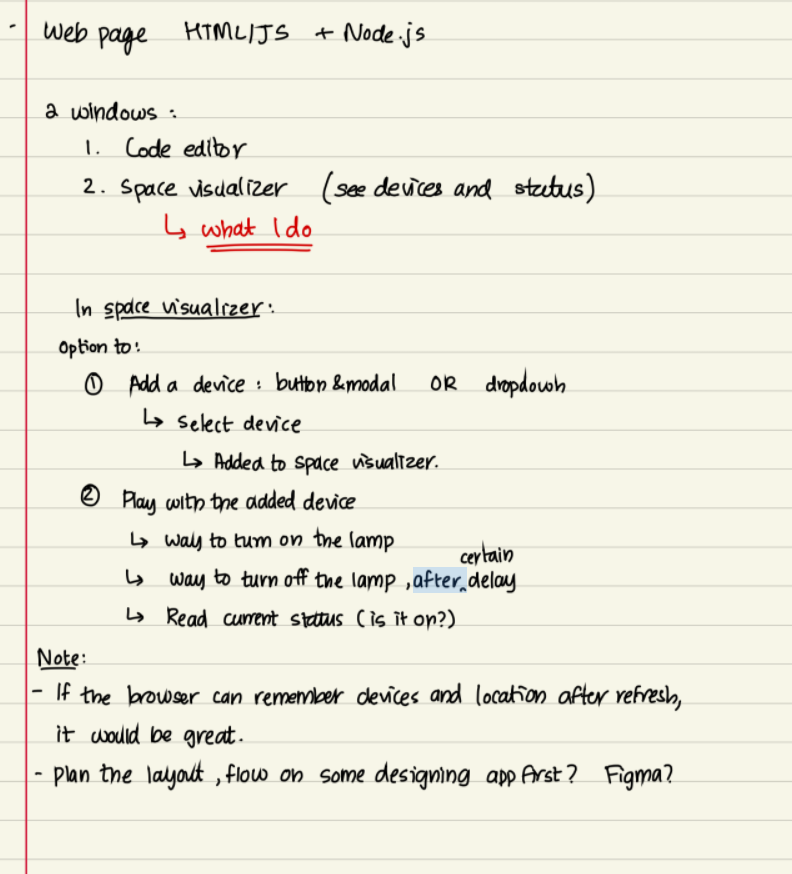 - Web page HTML/JS + Node.js
2 windows :
1. Code editor
2. Space visualizer (see devices and status)
↳ what I do
In space visualizer:
Option to:
① Add a device : button & modal OR dropdown
↳ Select device
↳ Added to space visualizer.
② Play with the added device
↳ way to turn on the lamp
certain
↳ way to turn off the lamp , after‸ delay
↳ Read current status (is it on?)
Note:
- If the browser can remember devices and location after refresh,
it would be great.
- Plan the layout , flow on some designing app first? Figma?